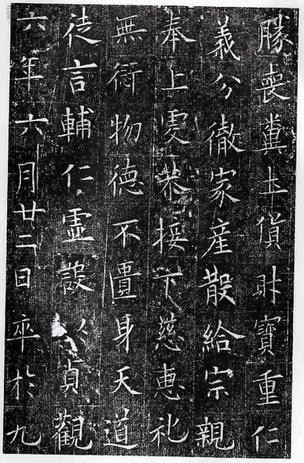 勝喪糞土貨財寶重仁
義分徹家産散給宗親
奉上虔恭接下慈惠礼
無物德不僵身天道
徒言輔仁虛設以貞觀
六年六月廿二日卒於九